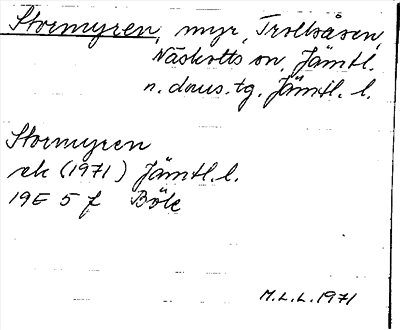 Stormyren, myr, Trollsåsen,
Näskotts sn, Jämtl.
n. doms.tg. Jämtl. l.
Stormyren
ek (1971) Jämtl. l.
19E 5 f Bök
M.L.L. 1971